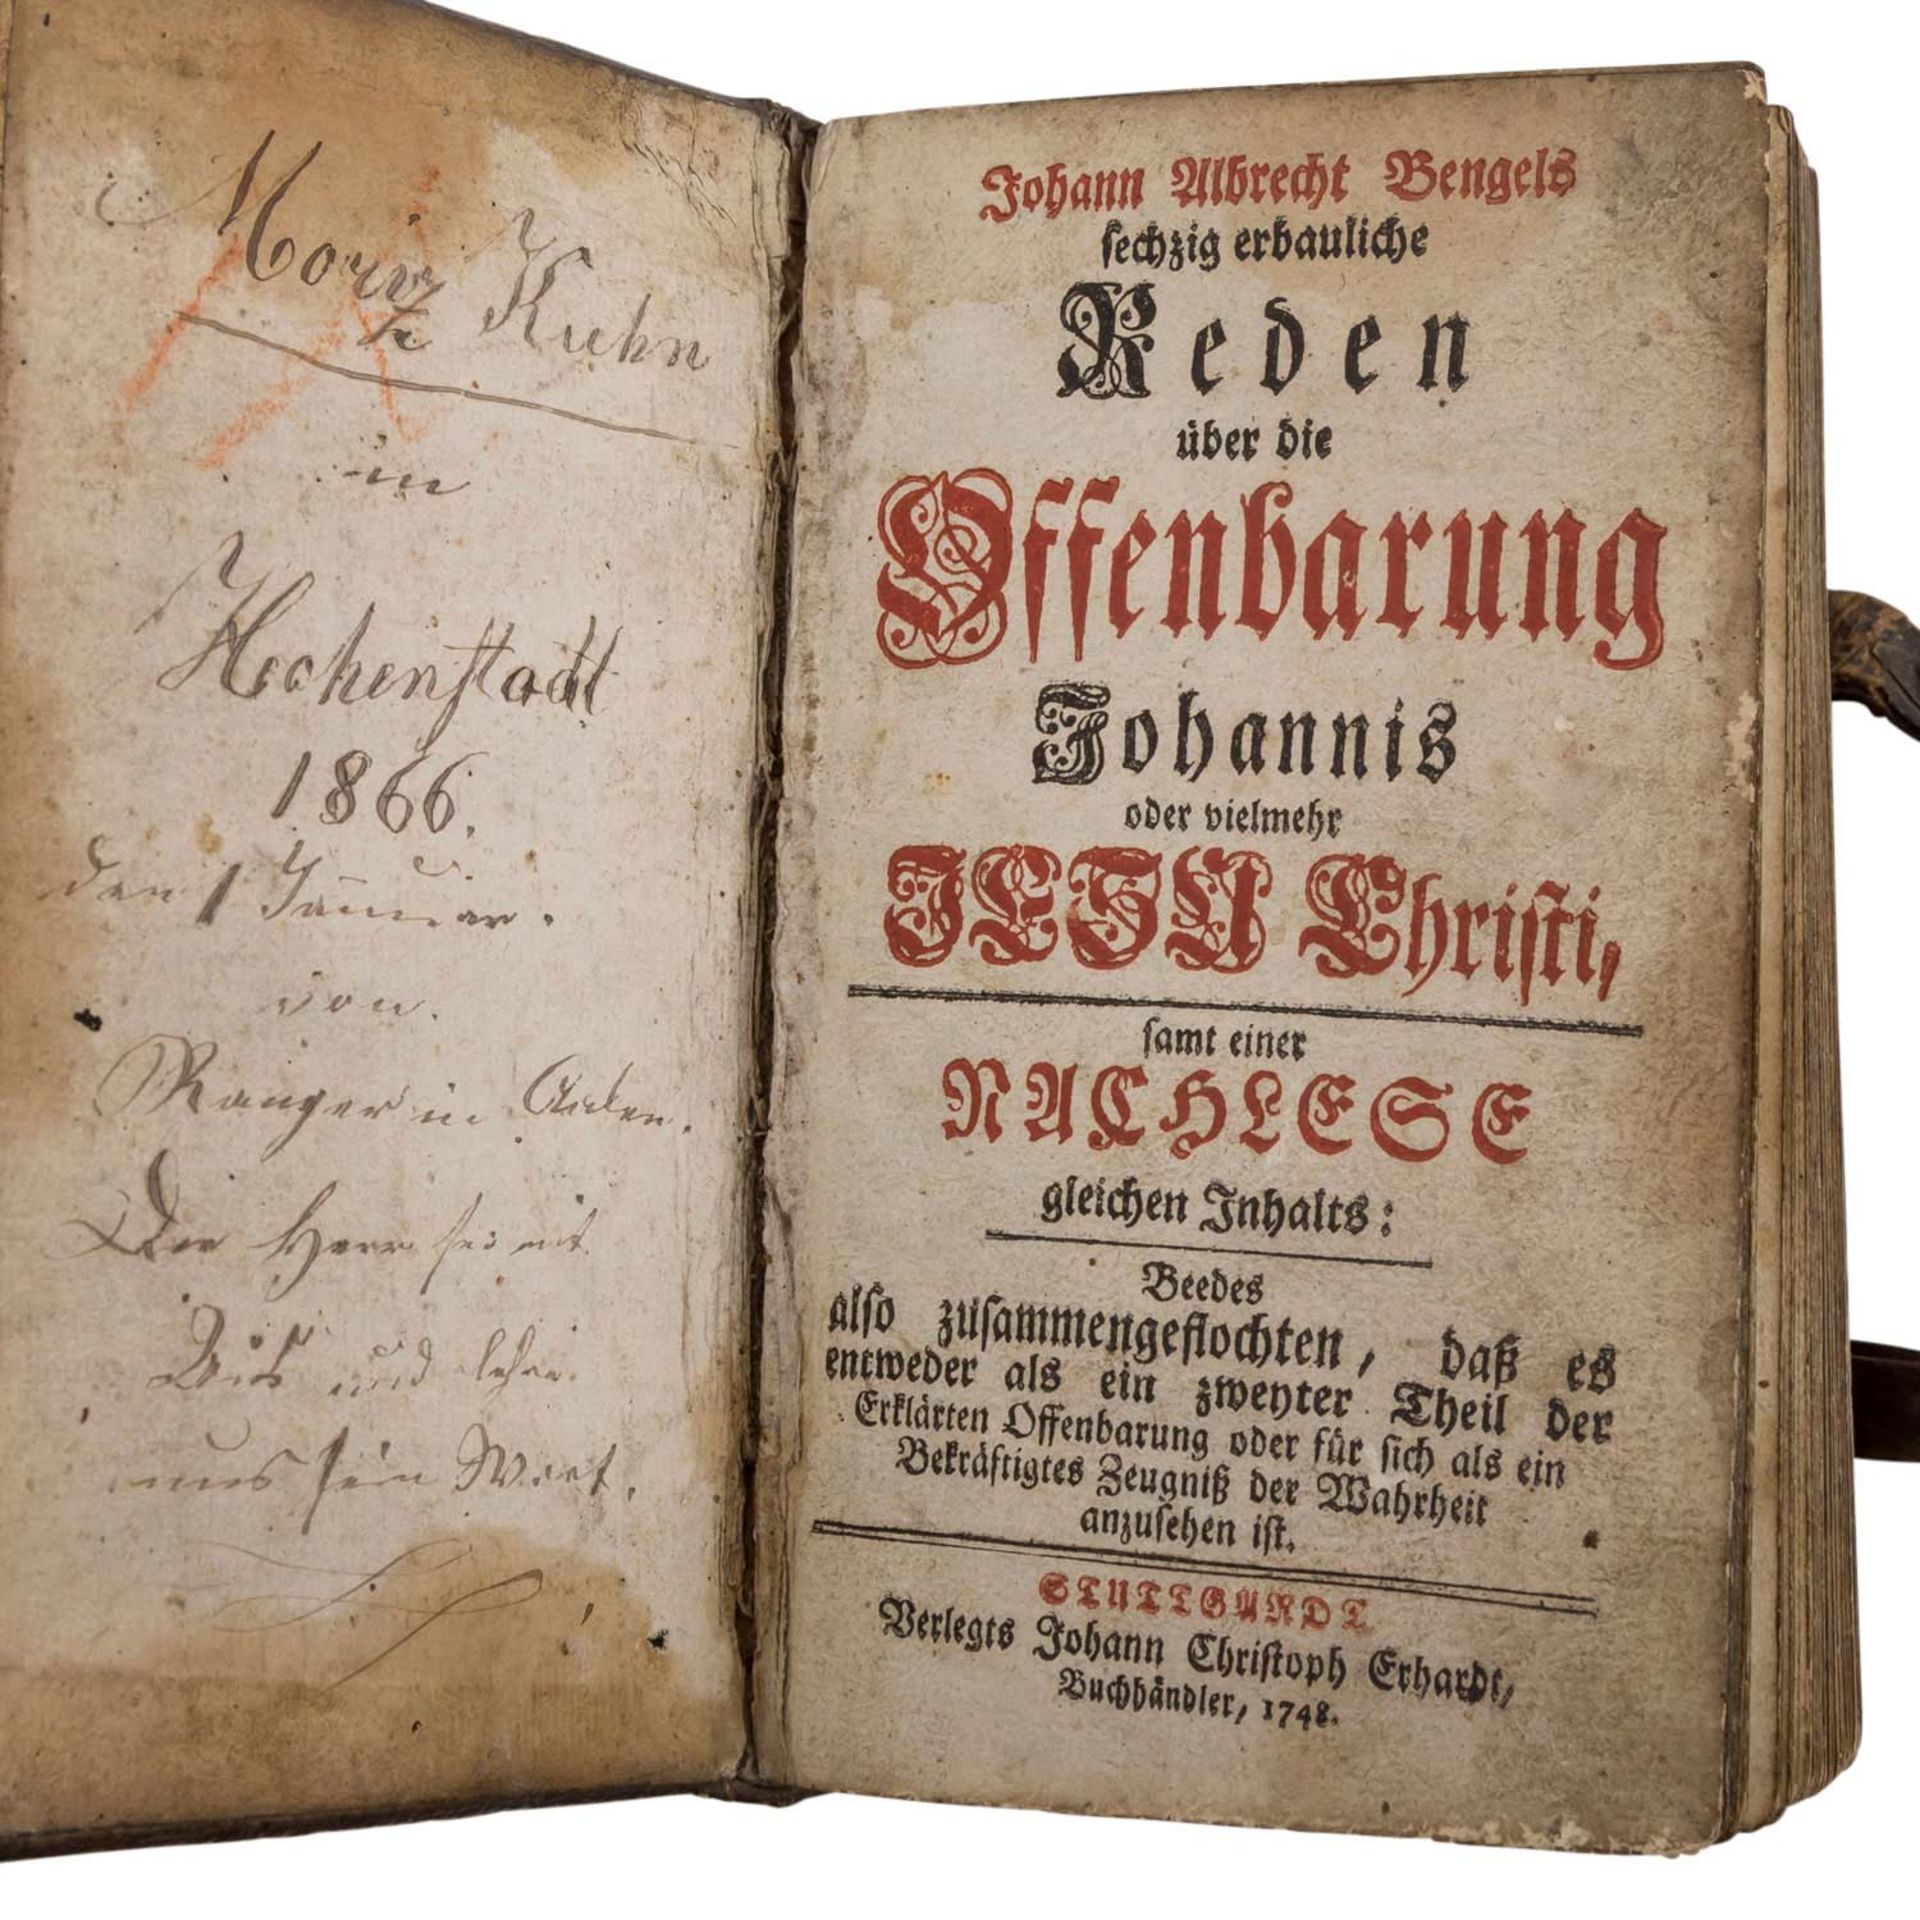 Moriz Kuhn
in
Hochenstadt
1866.
den 1 Januar.
von.
Manger in
Der Herr sei mit
Uns und lehre
uns sein Wort.
Johann Albrecht Bengels
sechzig erbauliche
Reden
über die
Offenbarung
Johannis
oder vielmehr
JESU Christi,
samt einer
NACHLESE
gleichen Inhalts:
Beedes
also zusammengeflochten, daß es
entweder als ein zweyter Theil der
Erklärten Offenbarung oder für sich als ein
Bekräftigtes Zeugniß der Wahrheit
anzusehen ist.
STUTTGARDT
Verlegts Johann Christoph Erhardt,
Buchhändler, 1748.